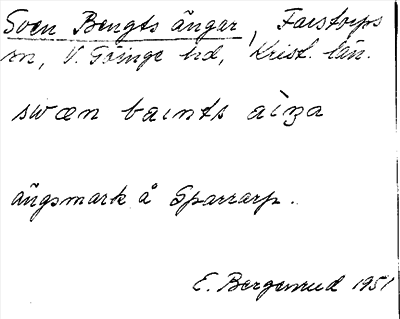 Sven Bengts ängar, Farstorps
sn, V. Göinge hd, Krist. län.
swæn baints äiŋa
ängsmark å Sparrarp.
E. Bergstrand 1951